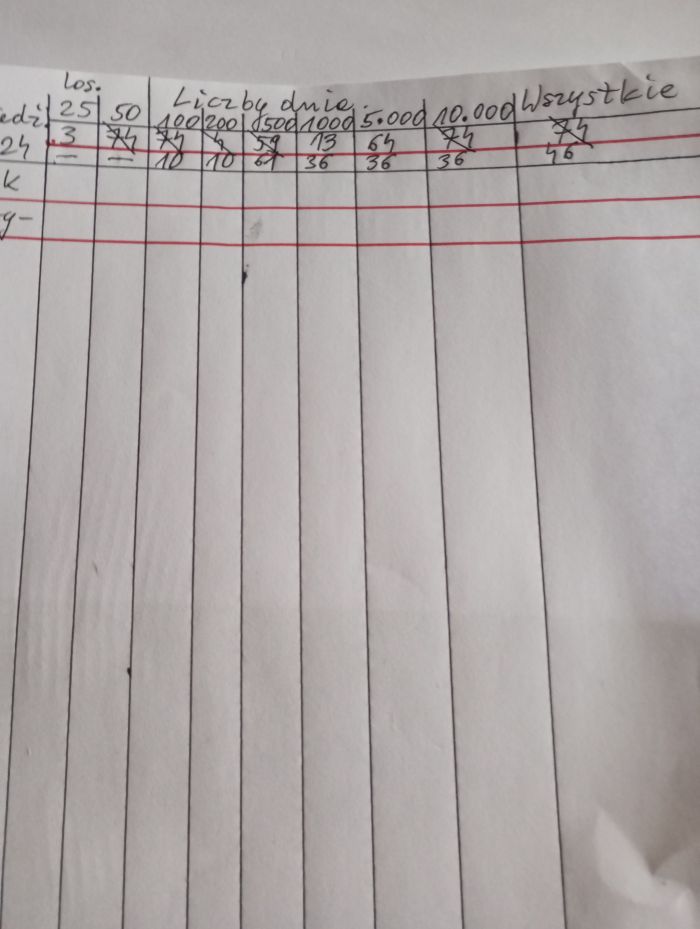 Los.
Liczby dnie. Wszystkie
edzi 25 50 100 200 500 1000 5.000 10.000
24 3 74 74 59 13 64 74 74
— — 10 10 61 36 36 36 46
k
y-